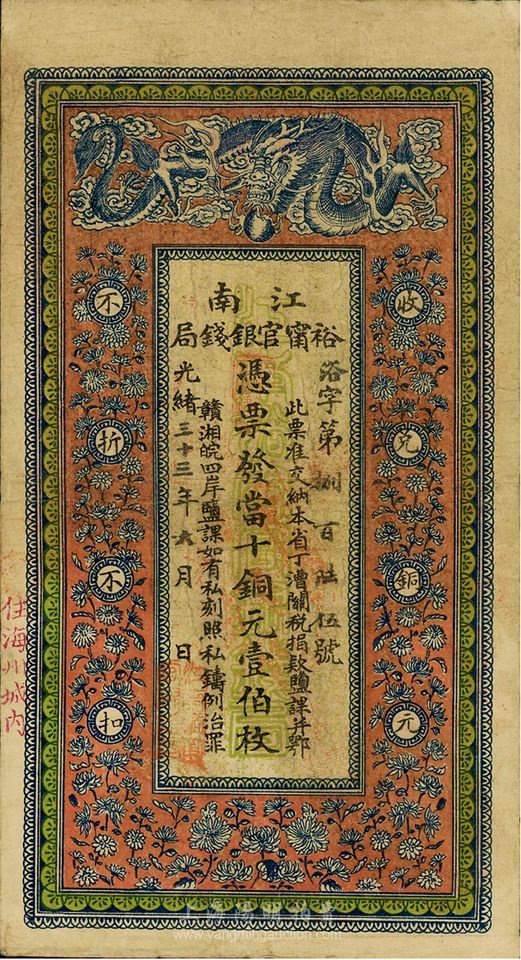 江南
裕甯官銀錢局
浴字第捌百肆伍號
此票准交納本省丁漕關稅捐款鹽課并鄂
憑票發當十銅元壹佰枚
贛湘皖四岸鹽課如有私刻照私鑄例治罪
光緒三十三年六月 日
收兌銅元
不折不扣
住海州城內
上海陽明拍賣
www.yangmingauction.com